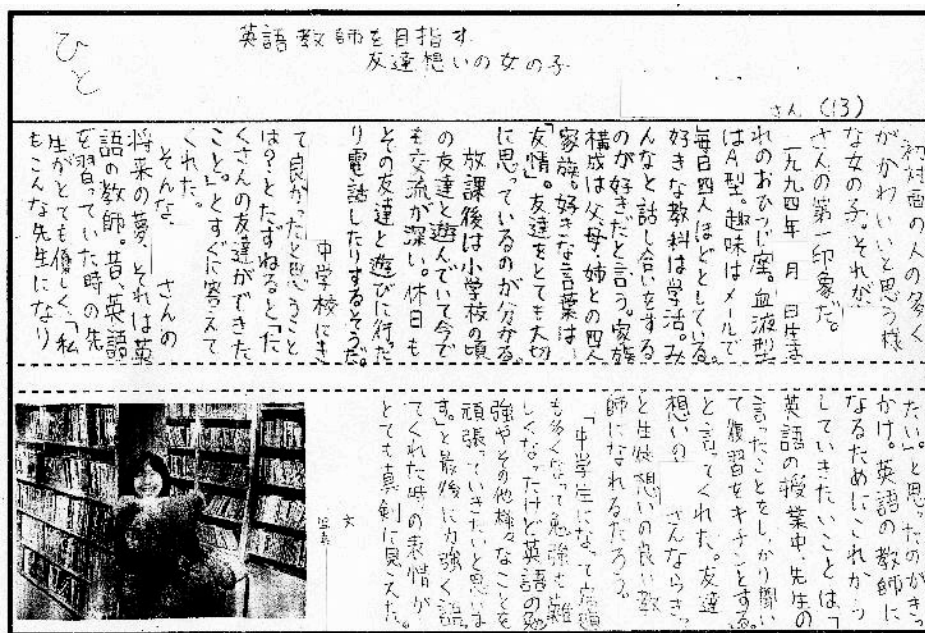 ひと
英語教師を目指す
友達想いの女の子
さん (13)
初対面の人の多く
がかわいいと思う様
な女の子。それが
さんの第一印象だ。
一九九四年 月 日生ま
れのおひつじ座。血液型
はA型。趣味はメールで
毎日四人ほどとしている。
好きな教科は学活。み
んなと話し合いをする
のが好きだと言う。家族
構成は父、母、姉との四人
家族。好きな言葉は、
「友情」。友達をとても大切
に思っているのが分かる。
放課後は小学校の頃
の友達と遊んでいて今で
も交流が深い。休日も
その友達と遊びに行った
り電話したりするそうだ。
中学校にき
て良かったと思うこと
は?とたずねると「た
くさんの友達ができた
こと。」とすぐに答えて
くれた。
そんな さんの
将来の夢、それは英
語の教師。昔、英語
を習っていた時の先
生がとても優しく、「私
もこんな先生になり
たい。」と思ったのがきっ
かけ。英語の教師に
なるためにこれから
していきたいことは、「
英語の授業中、先生の
言ったことをしっかり聞い
て復習をキチンとする。」
と言ってくれた。友達
想いの さんならきっ
と生徒想いの良い教
師になれるだろう。
「中学生になって宿題
も多くなって勉強も難
しくなったけど英語の勉
強やその他様々なことを
頑張っていきたいと思いま
す。」と最後に力強く語っ
てくれた時の表情が
とても真剣に見えた。
文
写真